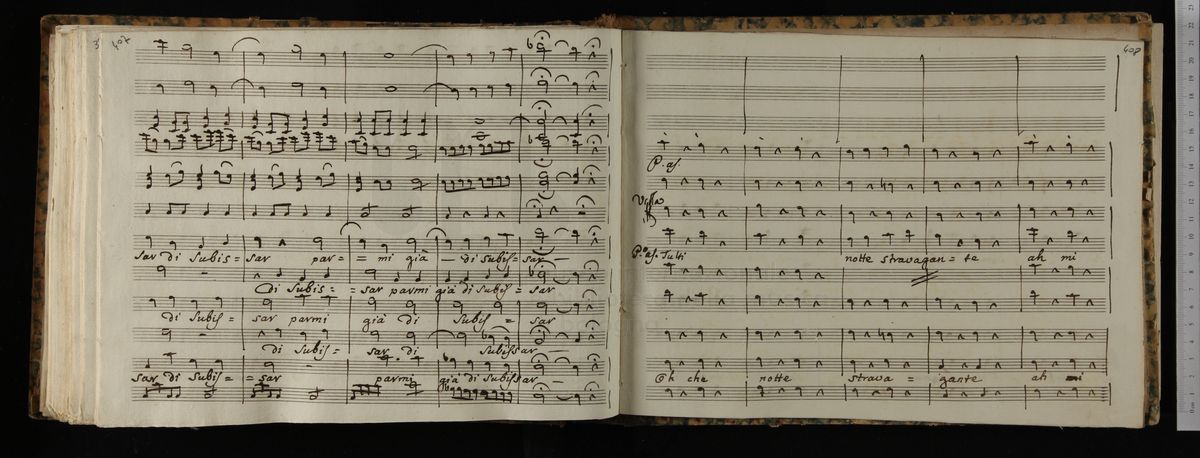 407
sar di Subis = sar par = = mi già — di subis = sar —
di Subis = = sar parmi già di Subis = sar
di Subis = sar parmi già di Subis = sar
di Subis = sar di Subissar —
sar di Subis = = sar parmi già di Subissar —
408
P. as.
P.o as. Tutti notte stravagan = te ah mi
Oh che notte strava = gante ah mi